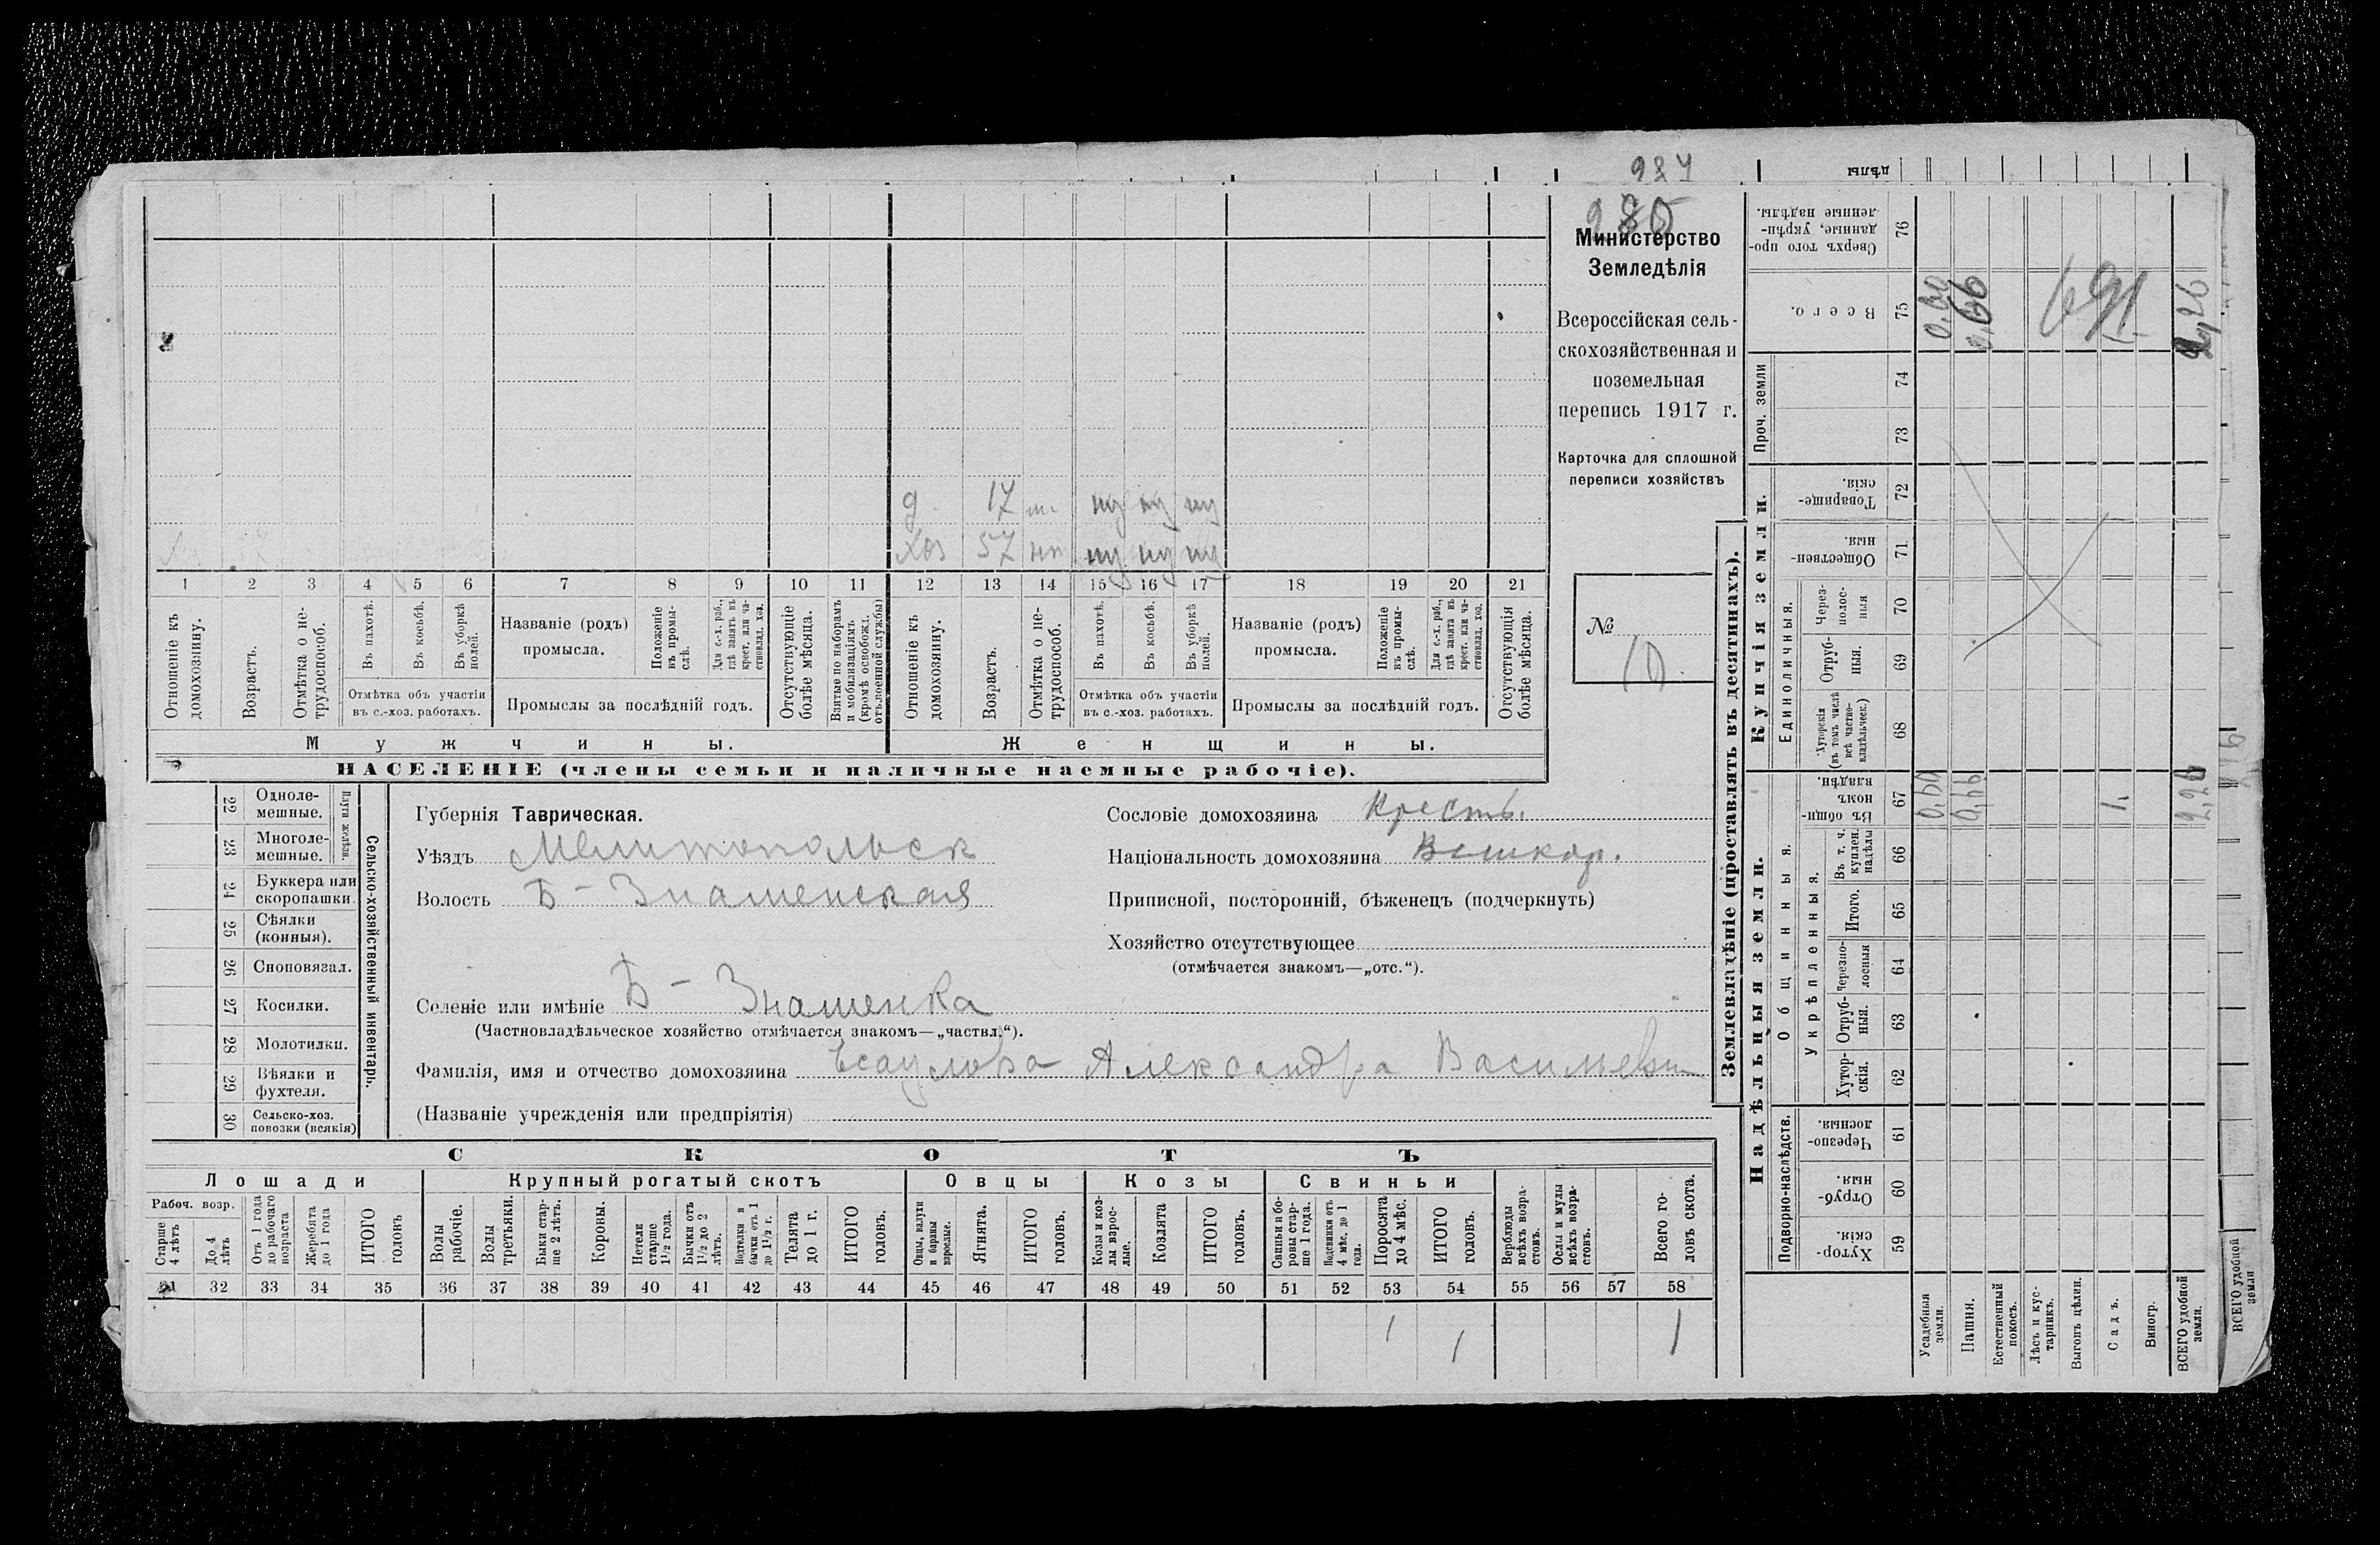 984
980
Министерство
Земледѣлія
Всероссійская сель-
скохозяйственная и
поземельная
перепись 1917 г.
Карточка для сплошной
переписи хозяйствъ
№
10.
д. 17
Хоз 57
1 2 3 4 5 6 7 8 9 10 11 12 13 14 15 16 17 18 19 20 21
Отношеніе къ домохозяину.
Возрастъ.
Отмѣтка о не-трудоспособ.
Въ пахотѣ.
Въ косьбѣ.
Въ уборкѣ полей.
Отмѣтка объ участіи
въ с.-хоз. работахъ.
Названіе (родъ)
промысла.
Положеніе въ промы-слѣ.
Для с.-х. раб., гдѣ занятъ въ крест. или ча-стновлад. хоз.
Промыслы за послѣдній годъ.
Отсутствующіе болѣе мѣсяца.
Взятые по наборамъ и мобилизаціямъ (кромѣ освобожд. отъ военной службы)
Отношеніе къ домохозяину.
Возрастъ.
Отмѣтка о не-трудоспособ.
Въ пахотѣ.
Въ косьбѣ.
Въ уборкѣ полей.
Отмѣтка объ участіи
въ с.-хоз. работахъ.
Названіе (родъ)
промысла.
Положеніе въ промы-слѣ.
Для с.-х. раб., гдѣ занята въ крест. или ча-стновлад. хоз.
Промыслы за послѣдній годъ.
Отсутствующія болѣе мѣсяца.
Мужчины.
Женщины.
НАСЕЛЕНІЕ (члены семьи и наличные наемные рабочіе).
Сельско-хозяйственный инвентарь.
Плуги желѣзн.
22 Одноле-мешные.
23 Многоле-мешные.
24 Буккера или скоропашки.
25 Сѣялки (конныя).
26 Сноповязал.
27 Косилки.
28 Молотилки.
29 Вѣялки и фухтеля.
30 Сельско-хоз. повозки (всякія)
Губернія Таврическая.
Уѣздъ Мелитопольск
Волость Б-Знаменская
Селеніе или имѣніе Б-Знаменка
(Частновладѣльческое хозяйство отмѣчается знакомъ—„частвл.“).
Фамилія, имя и отчество домохозяина Есаулова Александра Василіевн
(Названіе учрежденія или предпріятія)
Сословіе домохозяина Кресть.
Національность домохозяина Великор.
Приписной, посторонній, бѣженецъ (подчеркнуть)
Хозяйство отсутствующее
(отмѣчается знакомъ—„отс.“).
СКОТЪ
Лошади
Крупный рогатый скотъ
Овцы
Козы
Свиньи
Рабоч. возр.
Старше 4 лѣтъ
До 4 лѣтъ
Отъ 1 года до рабочаго возраста
Жеребята до 1 года
ИТОГО головъ
Волы рабочіе.
Волы третьяки.
Быки стар-ше 2 лѣтъ.
Коровы.
Нетели старше 1½ года.
Бычки отъ 1½ до 2 лѣтъ.
Подтелки и бычки отъ 1 до 1½ г.
Телята до 1 г.
ИТОГО головъ.
Овцы, валухи и бараны взрослые.
Ягнята.
ИТОГО головъ.
Козы и коз-лы взрос-лые.
Козлята
ИТОГО головъ.
Свиньи и бо-ровы стар-ше 1 года.
Подсвинки отъ 4 мѣс. до 1 года.
Поросята до 4 мѣс.
ИТОГО головъ.
Верблюды всѣхъ возра-стовъ.
Ослы и мулы всѣхъ возра-стовъ.
Всего го-ловъ скота.
31 32 33 34 35 36 37 38 39 40 41 42 43 44 45 46 47 48 49 50 51 52 53 54 55 56 57 58
1 1 1
Землевладѣніе (проставлять въ десятинахъ).
Надѣльныя земли.
Купчія земли.
Проч. земли
Подворно-наслѣдств.
Общинныя.
Укрѣпленныя.
Единоличныя.
Хутор-скія. 59
Отруб-ныя. 60
Черезпо-лосныя. 61
Хутор-скія. 62
Отруб-ныя. 63
Черезпо-лосныя 64
Итого. 65
Въ т. ч. куплен. надѣлы 66
Въ общи-номъ владѣн. 67
Хуторскія (въ томъ числѣ всѣ частно-владѣльческ.) 68
Отруб-ныя. 69
Через-полос-ныя 70
Обществен-ныя. 71
Товарище-скія. 72
73
74
Всего. 75
Сверхъ того про-данные, укрѣп-ленные надѣлы. 76
Усадебныя земли. 0.60 0.60
Пашня. 0.66 0.66
Естественный покосъ.
Лѣсъ и кус-тарникъ.
Выгонъ цѣлин.
Садъ. 1.
Виногр.
ВСЕГО удобной земли. 2.26 2,26
691
ВСЕГО удобной земли
дѣлы